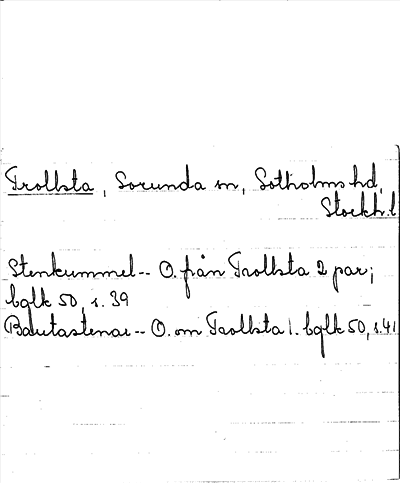 Trollsta, Sorunda sn, Sotholms hd,
Stockh. l
Stenkummel-- O. från Trollsta 2 par;
bglk 50, s. 39
Bautastenar-- O. om Trollsta l. bglk 50, s. 41